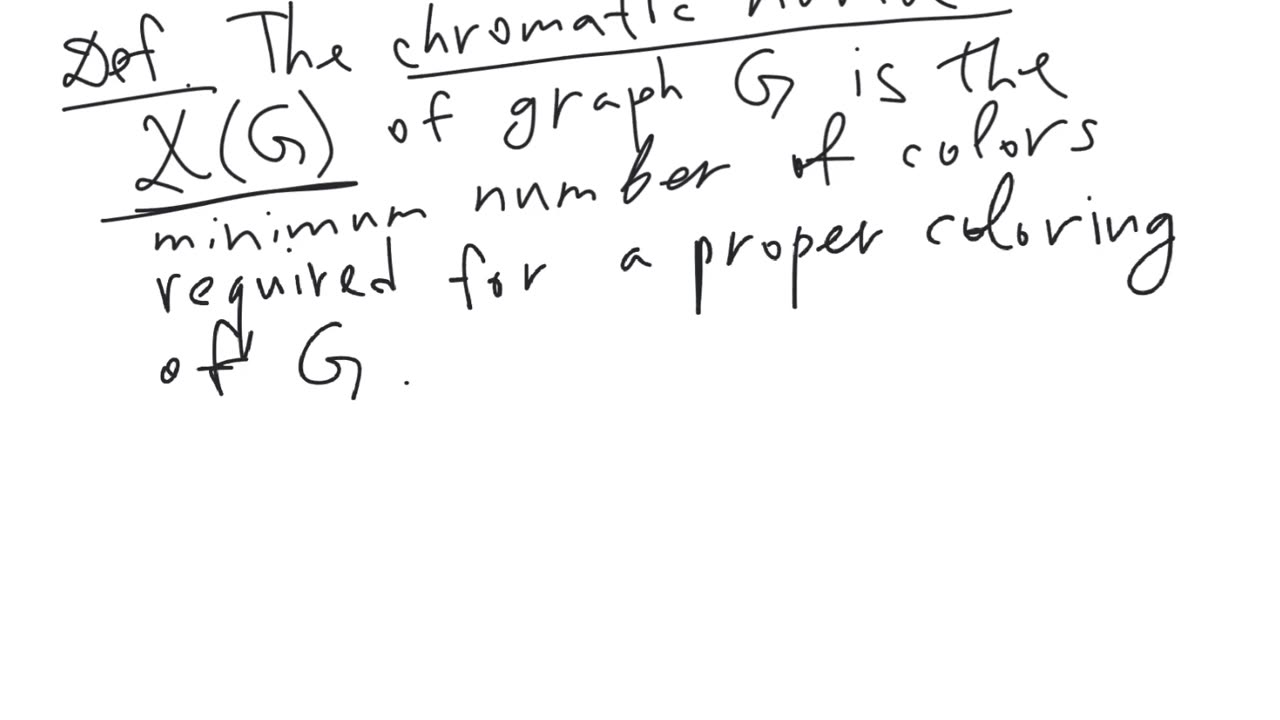 Def. The chromatic
χ(G) of graph G is the
minimum number of colors
required for a proper coloring
of G.